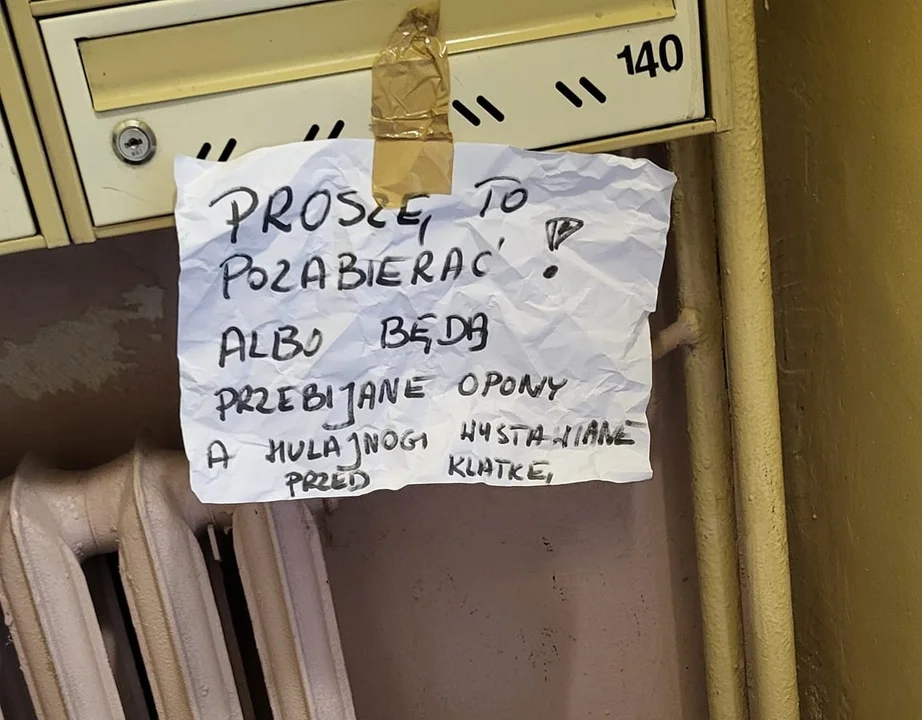 140
PROSZĘ TO
POZABIERAĆ !
ALBO BĘDĄ
PRZEBIJANE OPONY
A HULAJNOGI WYSTAWIANE
PRZED KLATKĘ,